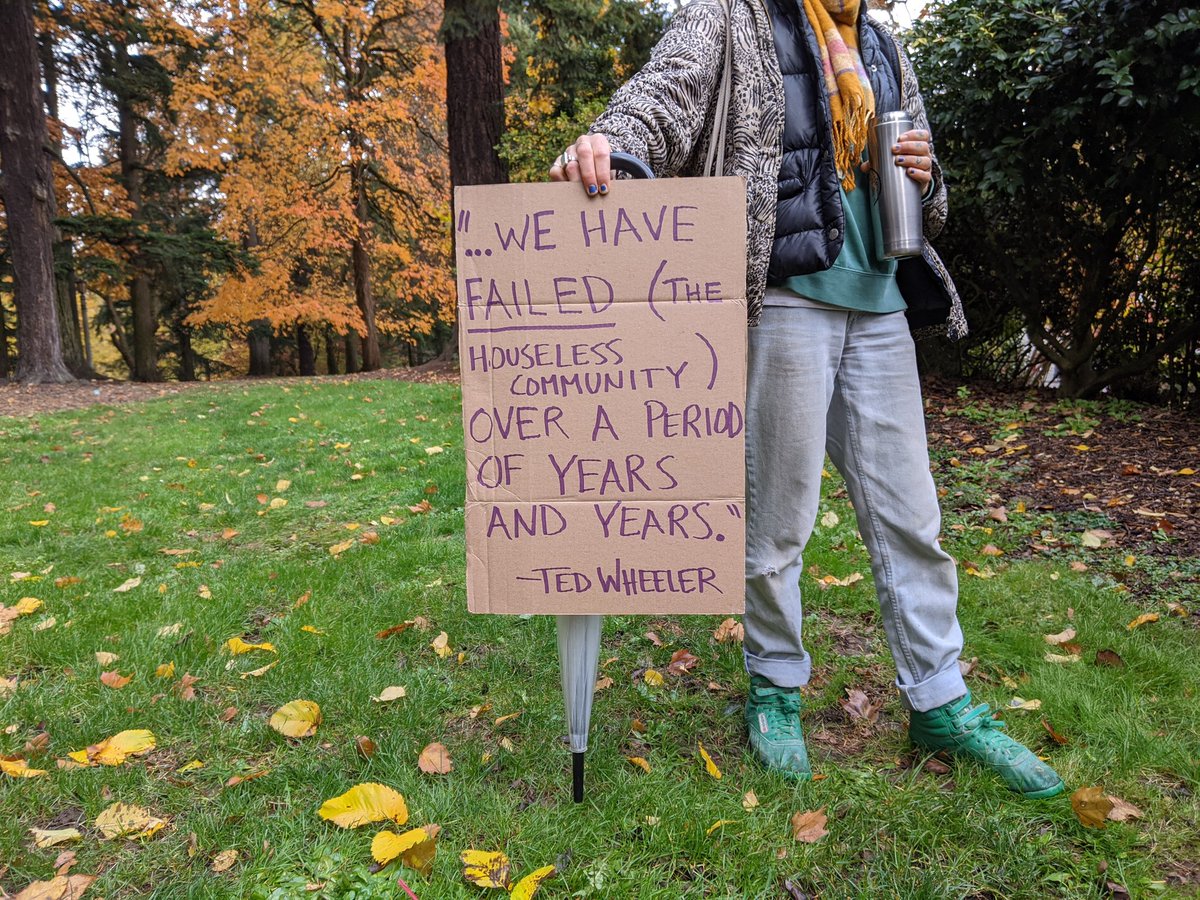 "...WE HAVE
FAILED (THE
HOUSELESS
COMMUNITY)
OVER A PERIOD
OF YEARS
AND YEARS."
-TED WHEELER